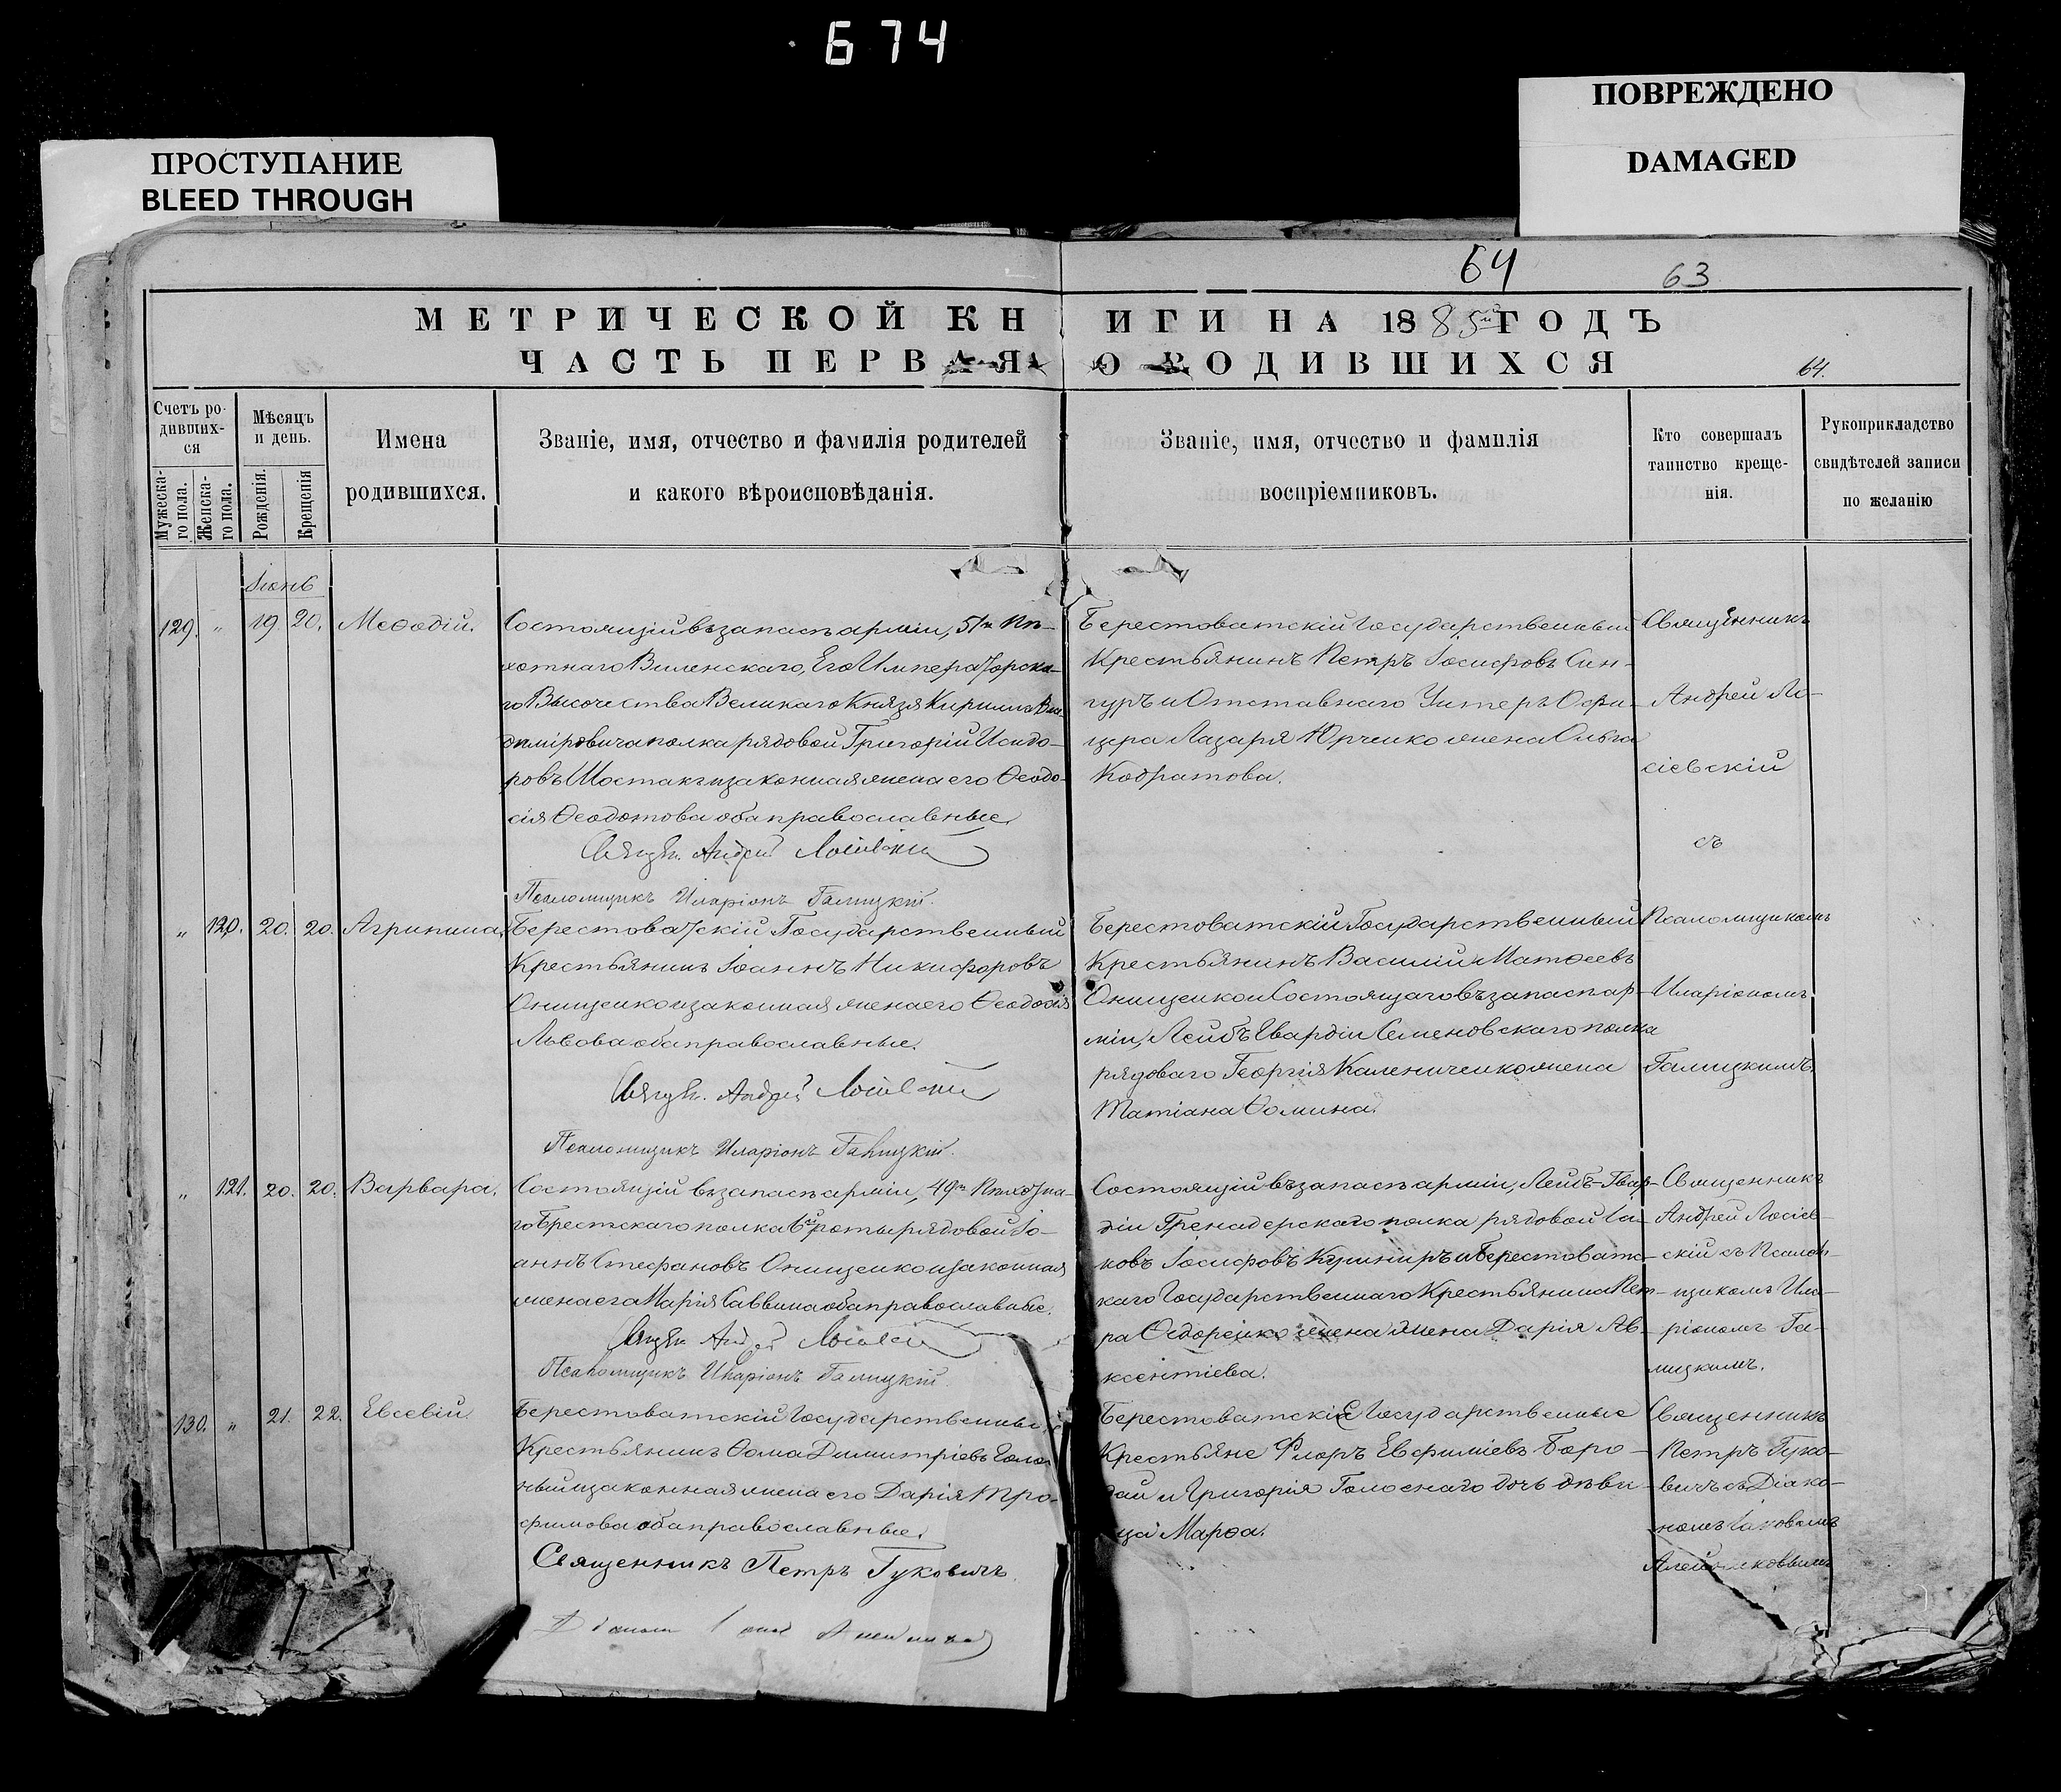 674
ПРОСТУПАНИЕ
BLEED THROUGH
ПОВРЕЖДЕНО
DAMAGED
64
63
МЕТРИЧЕСКОЙ КНИГИ НА 1885й ГОДЪ
ЧАСТЬ ПЕРВАЯ О РОДИВШИХСЯ
64.
Счетъ ро-
дивших-
ся
Мужеска-
го пола.
Женска-
го пола.
Мѣсяцъ
и день.
Рожденія.
Крещенія
Имена
родившихся.
Званіе, имя, отчество и фамилія родителей
и какого вѣроисповѣданія.
Званіе, имя, отчество и фамилія
воспріемниковъ.
Кто совершалъ
таинство креще-
нія.
Рукоприкладство
свидѣтелей записи
по желанію
Іюнь
129. " 19. 20. Меѳодій.
Состоящій въ запасѣ арміи, 51го Пѣ-
хотнаго Виленскаго, Его Императорска-
го Высочества Великаго Князя Кирилла Вла-
диміровича полка рядовой Григорій Исидо-
ровъ Шостакъ и законная жена его Ѳеодо-
сія Ѳеодотова оба православные.
Священ. Андрей Лосіевскій
Псаломщикъ Иларіонъ Галицкій.
Берестоватскій Государственный
Крестьянинъ Петръ Іосифовъ Син-
гуръ и Отставнаго Унтеръ Офи-
цера Лазаря Юрченко жена Ольга
Кодратова.
Священникъ
Андрей Ло-
сіевскій
съ
" 120. 20. 20. Агрипина.
Берестоватскій Государственный
Крестьянинъ Іоаннъ Никифоровъ
Онищенко и законная жена его Ѳеодосія
Львова оба православные.
Священ. Андрей Лосіевскій
Псаломщикъ Иларіонъ Галицкій.
Берестоватскій Государственный
Крестьянинъ Василій Матѳеевъ
Онищенко и Состоящаго въ запасѣ ар-
міи, Лейбъ Гвардіи Семеновскаго полка
рядоваго Георгія Калениченко жена
Татіана Ѳомина.
Псаломщикомъ
Иларіономъ
Галицкимъ.
" 121. 20. 20. Варвара.
Состоящій въ запасѣ арміи, 49го Пѣхотна-
го Брестскаго полка роты рядовой Іо-
аннъ Стефановъ Онищенко и законная
жена его Марія Саввина оба православные.
Священ. Андрей Лосіевскій
Псаломщикъ Иларіонъ Галицкій.
Состоящій въ запасѣ арміи, Лейбъ-Гвар-
діи Гренадерскаго полка рядовой Іа-
ковъ Іосифовъ Кушниръ и Берестоватс-
каго Государственнаго Крестьянина Пет-
ра Ѳедоренко жена Дарія Ав-
ксентіева.
Священникъ
Андрей Лосіев-
скій съ Псалом-
щикомъ Ила-
ріономъ Га-
лицкимъ.
130. " 21. 22. Евсевій.
Берестоватскій Государственный
Крестьянинъ Ѳома Димитріевъ
и законная жена его Дарія Тро-
фимова оба православные.
Священникъ Петръ Гуковичъ.
Діаконъ
Берестоватскіе Государственные
Крестьяне Флоръ Евфиміевъ Боро-
дай и Григорія Голоснаго дочь дѣви-
ца Марѳа.
Священникъ
Петръ Гуко-
вичъ съ Діако-
номъ Іаковомъ